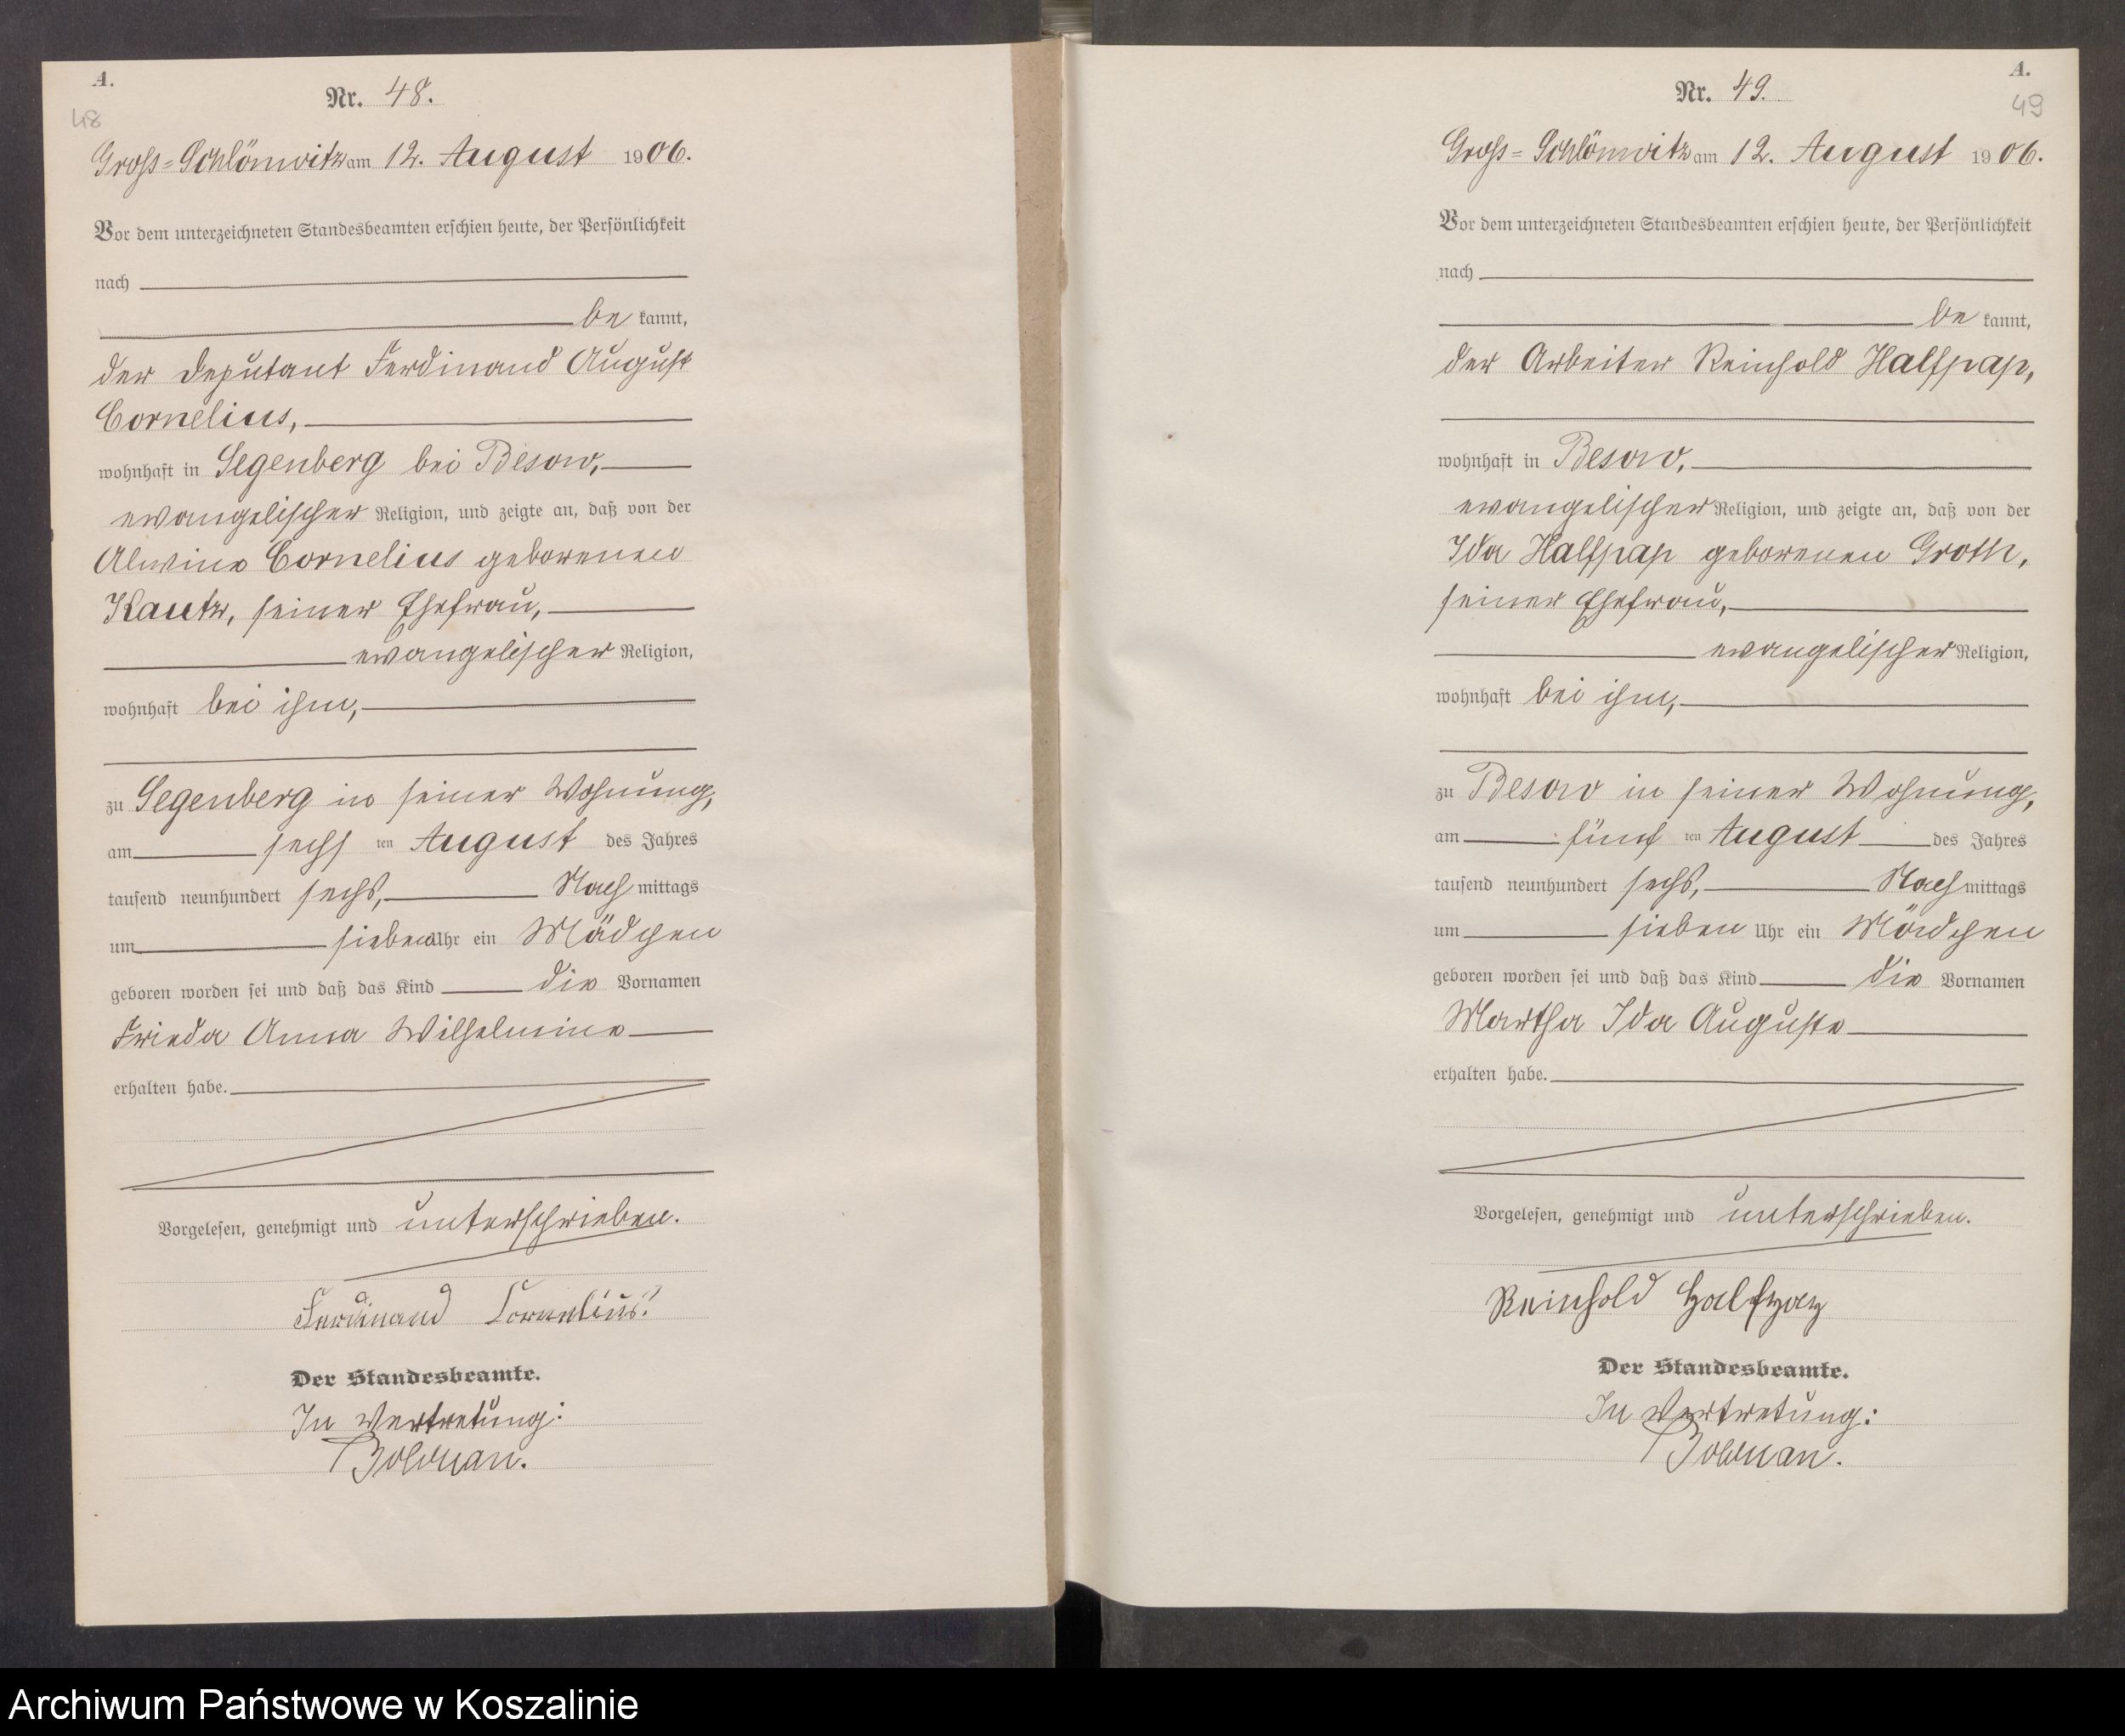 A.
48
Nr. 48.
Gross-Schlönwitz am 12. August 1906.
Vor dem unterzeichneten Standesbeamten erschien heute, der Persönlichkeit
nach
be kannt,
der Deputant Ferdinand August
Cornelius,
wohnhaft in Segenberg bei Besow,
evangelischer Religion, und zeigte an, daß von der
Alwine Cornelius geborenen
Kautz, seiner Ehefrau,
evangelischer Religion,
wohnhaft bei ihm,
zu Segenberg in seiner Wohnung,
am sechs ten August des Jahres
tausend neunhundert sechs, Nach mittags
um sieben Uhr ein Mädchen
geboren worden sei und daß das Kind die Vornamen
Frieda Anna Wilhelmine
erhalten habe.
Vorgelesen, genehmigt und unterschrieben.
Ferdinand Cornelius.
Der Standesbeamte.
In Vertretung:
Bolduan.
A.
49
Nr. 49.
Gross-Schlönwitz am 12. August 1906.
Vor dem unterzeichneten Standesbeamten erschien heute, der Persönlichkeit
nach
be kannt,
der Arbeiter Reinhold Halfpap,
wohnhaft in Besow,
evangelischer Religion, und zeigte an, daß von der
Ida Halfpap geborenen Groth,
seiner Ehefrau,
evangelischer Religion,
wohnhaft bei ihm,
zu Besow in seiner Wohnung,
am fünf ten August des Jahres
tausend neunhundert sechs, Nach mittags
um sieben Uhr ein Mädchen
geboren worden sei und daß das Kind die Vornamen
Martha Ida Auguste
erhalten habe.
Vorgelesen, genehmigt und unterschrieben.
Reinhold Halfpap
Der Standesbeamte.
In Vertretung:
Bolduan.
Archiwum Państwowe w Koszalinie